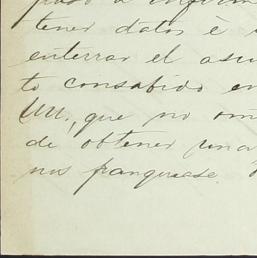 tener datos é
enterrar el asu
to consabido en
UU., que no om
de obtener una
nos franquease.